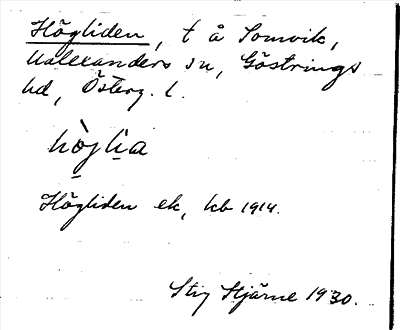 Högliden, t å Somvik,
Valexanders sn, Göstrings
hd, Österg. l.
hö̀gli̱a
Högliden ek, kb 1914.
Stig Stjärne 1930.